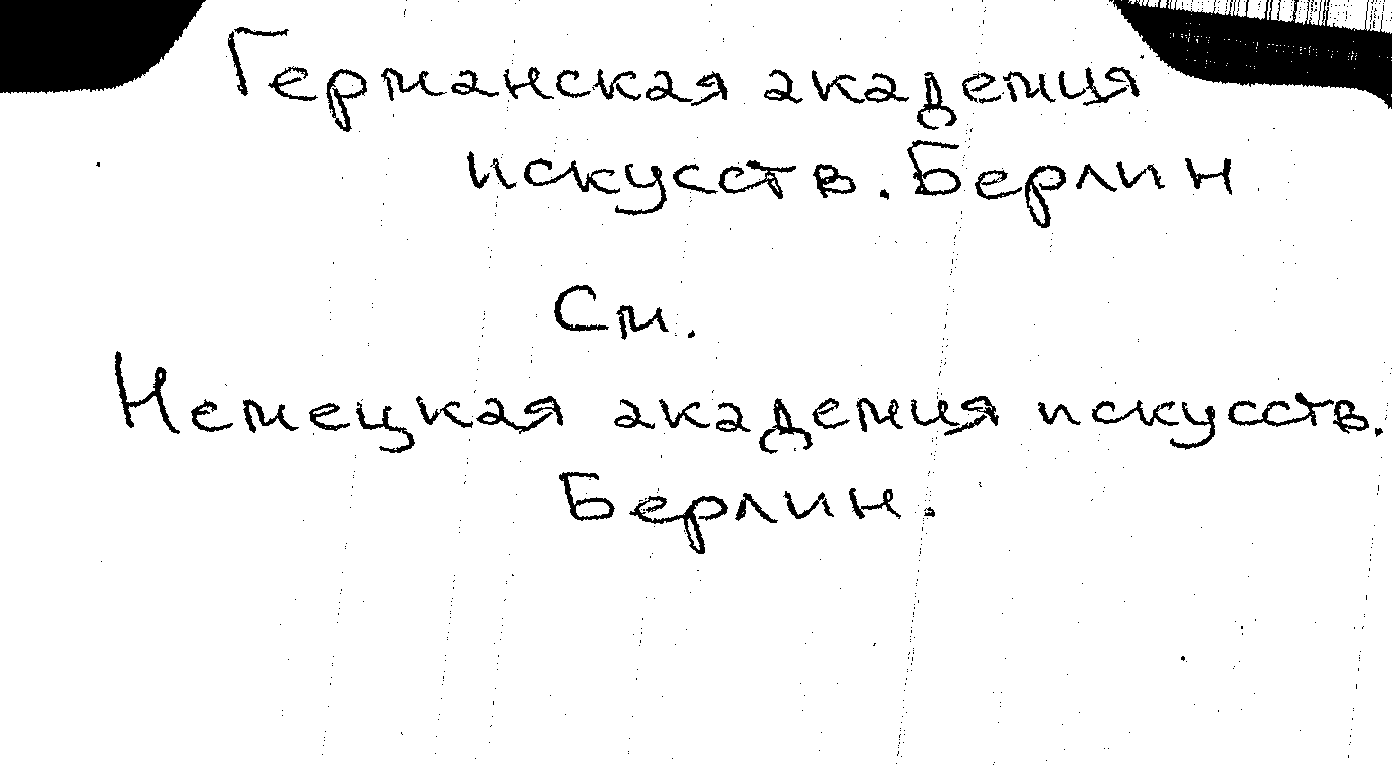 Германская академия
искусств. Берлин
См.
Немецкая академия искусств.
Берлин.